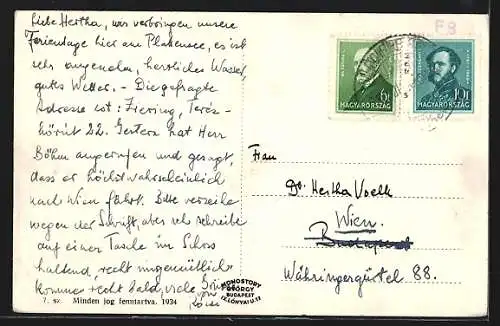 Liebe Hertha, wir verbringen unsere
Ferientage hier am Plattensee, es ist
sehr angenehm, herrliches Wasser,
gutes Wetter. - Die gefragte
Adresse ist: Ziering, Teréz-
körút 22. Gestern hat Herr
Böhm angerufen und gesagt,
dass er höchstwahrscheinlich
nach Wien fährt. Bitte verzeihe
wegen der Schrift, aber ich schreibe
auf einer Tasche im Schoss
haltend, recht ungemütlich
komme recht bald, viele Grüsse
von
7. sz. Minden jog fenntartva. 1934
MONOSTORY
GYÖRGY
BUDAPEST
IX. LÓNYAI U. 12
F8
6f
MAGYARORSZÁG
10f
MAGYARORSZÁG
Frau
Dr. Hertha Voelk
Wien.
Budapest
Währingergürtel 88.